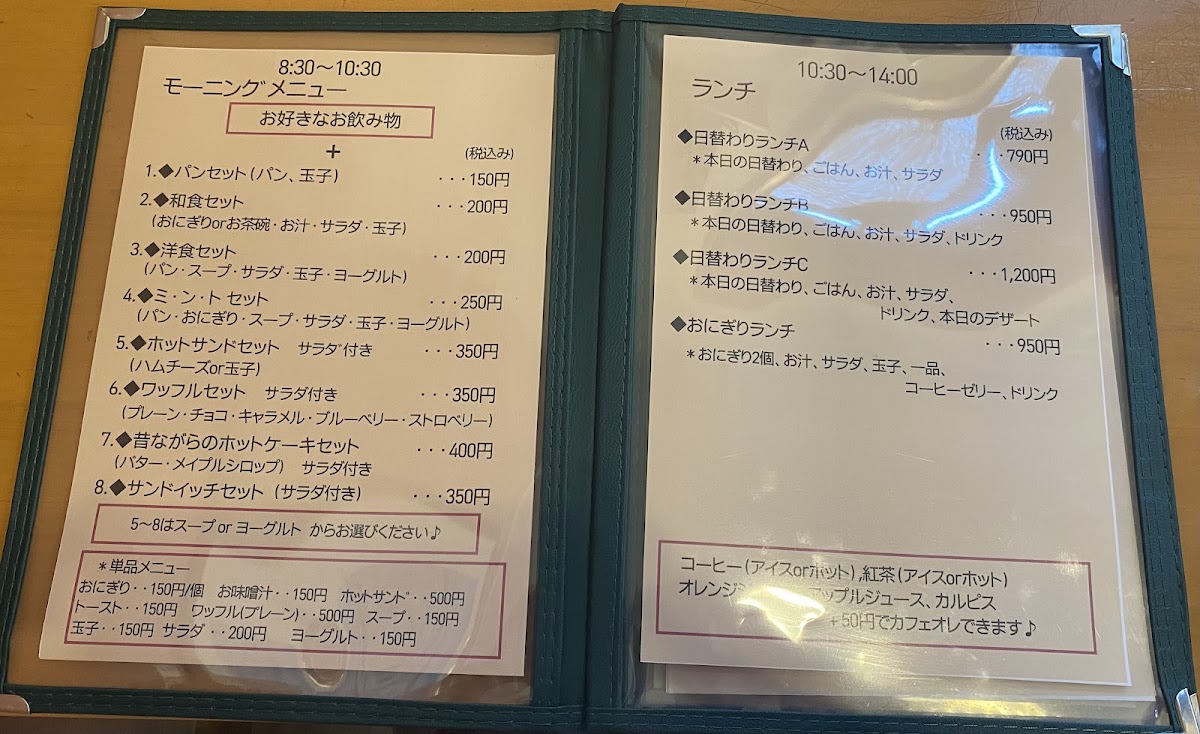 8:30～10:30
モーニングメニュー
お好きなお飲み物
＋
(税込み)
1.◆パンセット(パン、玉子) ・・・150円
2.◆和食セット ・・・200円
(おにぎりorお茶碗・お汁・サラダ・玉子)
3.◆洋食セット ・・・200円
(パン・スープ・サラダ・玉子・ヨーグルト)
4.◆ミ・ン・ト セット ・・・250円
(パン・おにぎり・スープ・サラダ・玉子・ヨーグルト)
5.◆ホットサンドセット サラダ付き ・・・350円
(ハムチーズor玉子)
6.◆ワッフルセット サラダ付き ・・・350円
(プレーン・チョコ・キャラメル・ブルーベリー・ストロベリー)
7.◆昔ながらのホットケーキセット ・・・400円
(バター・メイプルシロップ) サラダ付き
8.◆サンドイッチセット (サラダ付き) ・・・350円
5～8はスープ or ヨーグルト からお選びください♪
＊単品メニュー
おにぎり・・150円/個 お味噌汁・・150円 ホットサンド・・500円
トースト・・150円 ワッフル(プレーン)・・500円 スープ・・150円
玉子・・150円 サラダ・・200円 ヨーグルト・・150円
10:30～14:00
ランチ
(税込み)
◆日替わりランチA ・・・790円
＊本日の日替わり、ごはん、お汁、サラダ
◆日替わりランチB ・・・950円
＊本日の日替わり、ごはん、お汁、サラダ、ドリンク
◆日替わりランチC ・・・1,200円
＊本日の日替わり、ごはん、お汁、サラダ、
ドリンク、本日のデザート
◆おにぎりランチ ・・・950円
＊おにぎり2個、お汁、サラダ、玉子、一品、
コーヒーゼリー、ドリンク
コーヒー(アイスorホット),紅茶(アイスorホット)
オレンジ アップルジュース、カルピス
+50円でカフェオレできます♪